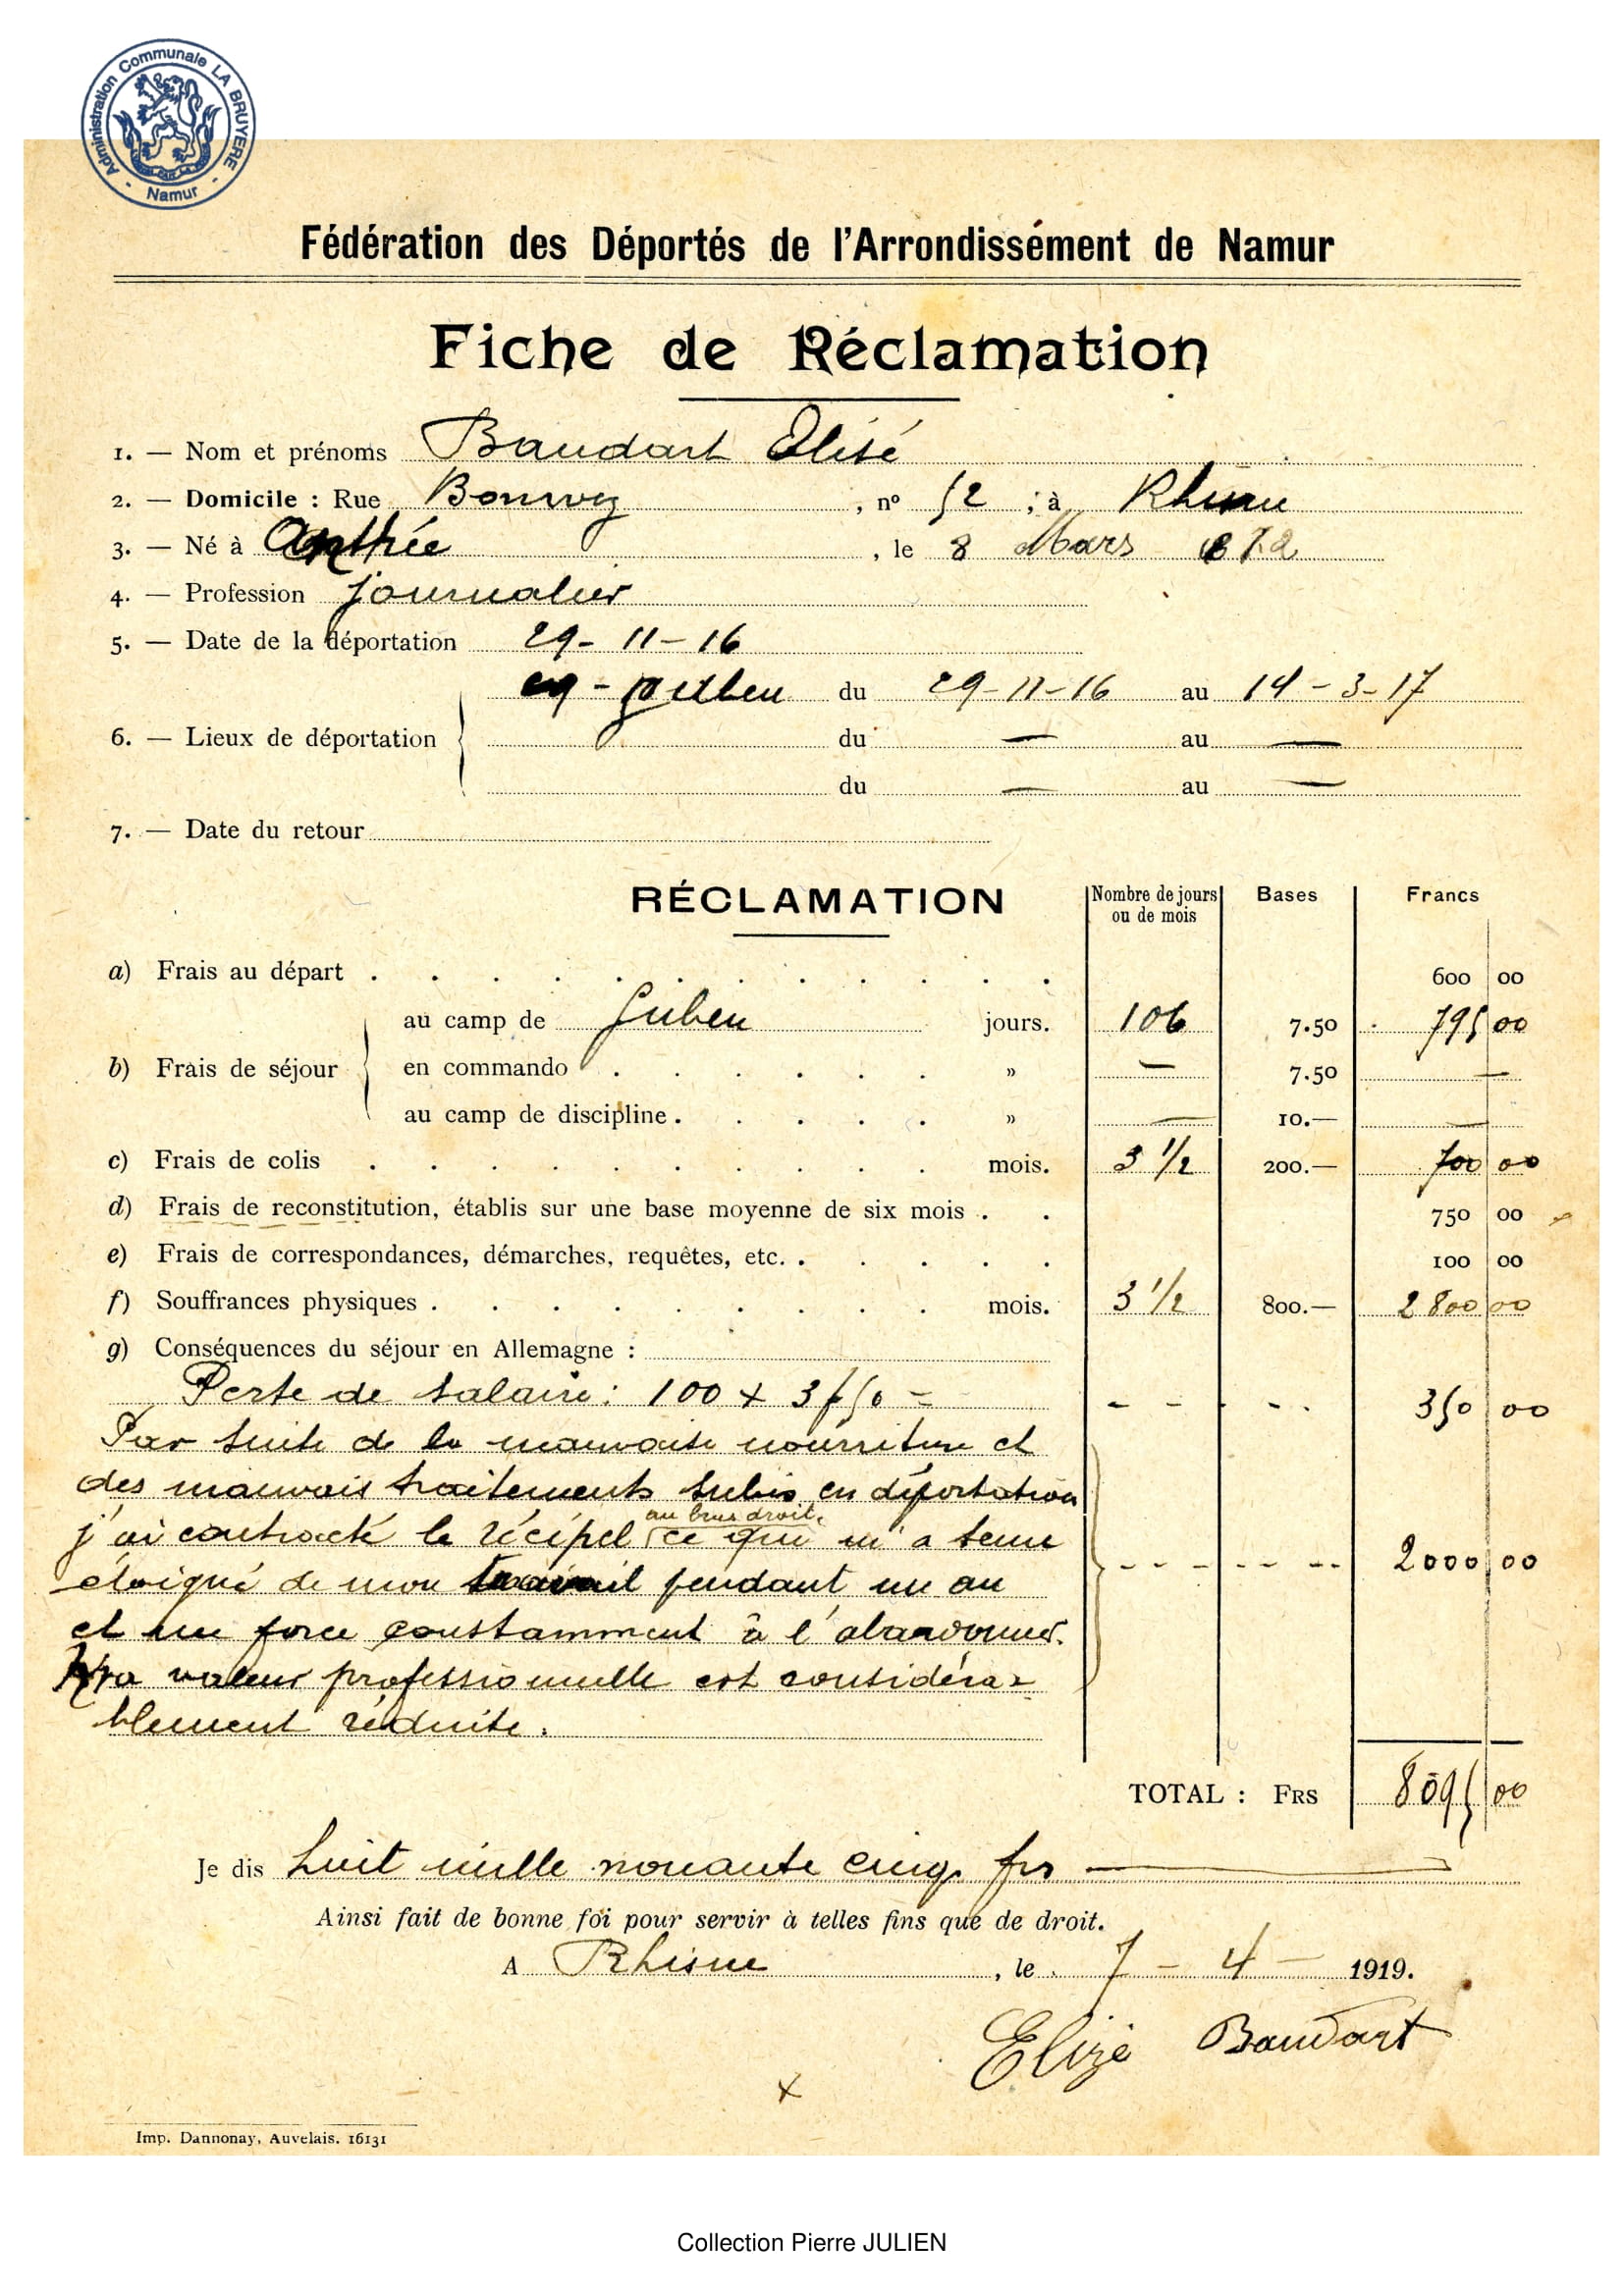 Administration Communale LA BRUYERE - Namur -
Fédération des Déportés de l'Arrondissement de Namur
Fiche de Réclamation
1. — Nom et prénoms Baudart Elisé
2. — Domicile : Rue Bouwez, n° 52 ; à Rhisne
3. — Né à Anthée, le 8 Mars 1872
4. — Profession journalier
5. — Date de la déportation 29-11-16
6. — Lieux de déportation
Guben du 29-11-16 au 14-3-17
du — au —
du — au —
7. — Date du retour
RÉCLAMATION Nombre de jours ou de mois Bases Francs
a) Frais au départ . . . . . . . . . . . . 600 00
b) Frais de séjour
au camp de Guben jours. 106 7.50 795 00
en commando . . . . . . » — 7.50 —
au camp de discipline . . . . . » — 10.— —
c) Frais de colis . . . . . . . . . . mois. 3 1/2 200.— 700 00
d) Frais de reconstitution, établis sur une base moyenne de six mois . . 750 00
e) Frais de correspondances, démarches, requêtes, etc. . . . . . 100 00
f) Souffrances physiques . . . . . . . . . mois. 3 1/2 800.— 2800 00
g) Conséquences du séjour en Allemagne :
Perte de salaire : 100 x 3f50 = - - - - - 350 00
Par suite de la mauvaise nourriture et
des mauvais traitements subis en déportation
au bras droit,
j'ai contracté le récipel ce qui m'a tenu
éloigné de mon travail pendant un an - - - - - - 2000 00
et me force constamment à l'abandonner.
Ma valeur professionnelle est considéra=
blement réduite.
TOTAL : FRS 8095 00
Je dis huit mille nonante cinq frs
Ainsi fait de bonne foi pour servir à telles fins que de droit.
A Rhisne, le 7 - 4 - 1919.
Elizé Baudart
x
Imp. Dannonay, Auvelais. 16131
Collection Pierre JULIEN